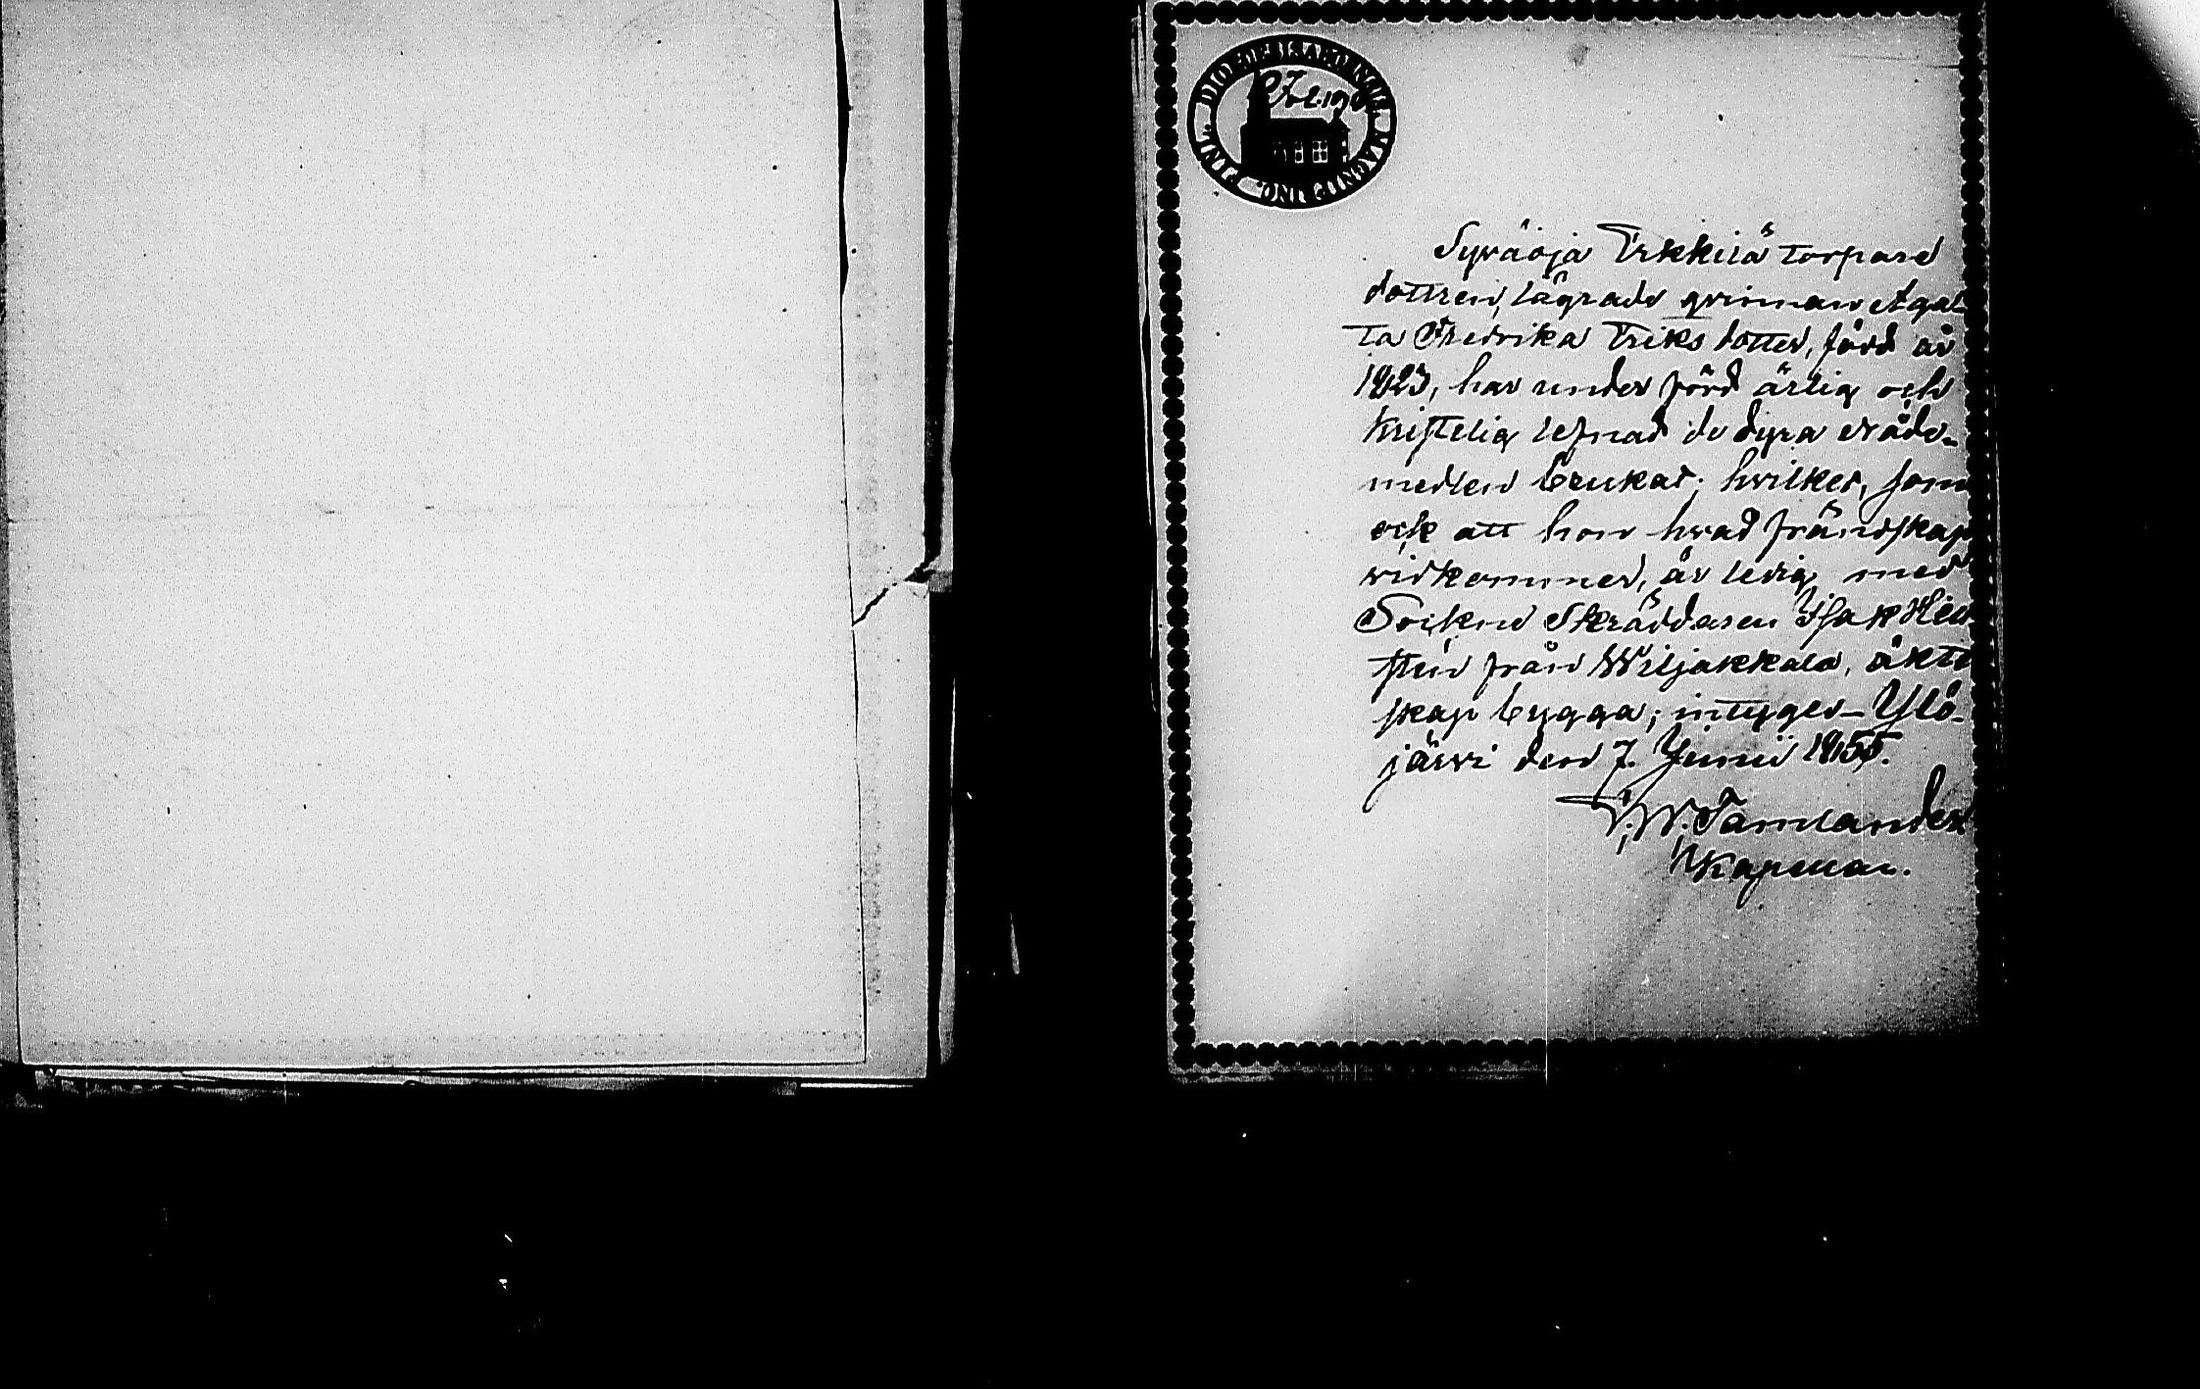 Syväoja Erkkilä torpare
dottren, lägrade qvinnan Aga-
ta Fredrika Eriks dotter, född år
1823, har under förd ärlig och
kristelig lefnad de dyra nåde-
medlen brukat; hvilket, som
ock att hon hvad frändskap
vidkommer, är ledig med
Sockne Skräddaren Isak
från Wiljakkala, äkta
skap bygga; intygar Ylö-
järvi den 7. Junii 1855.
Kapellan.